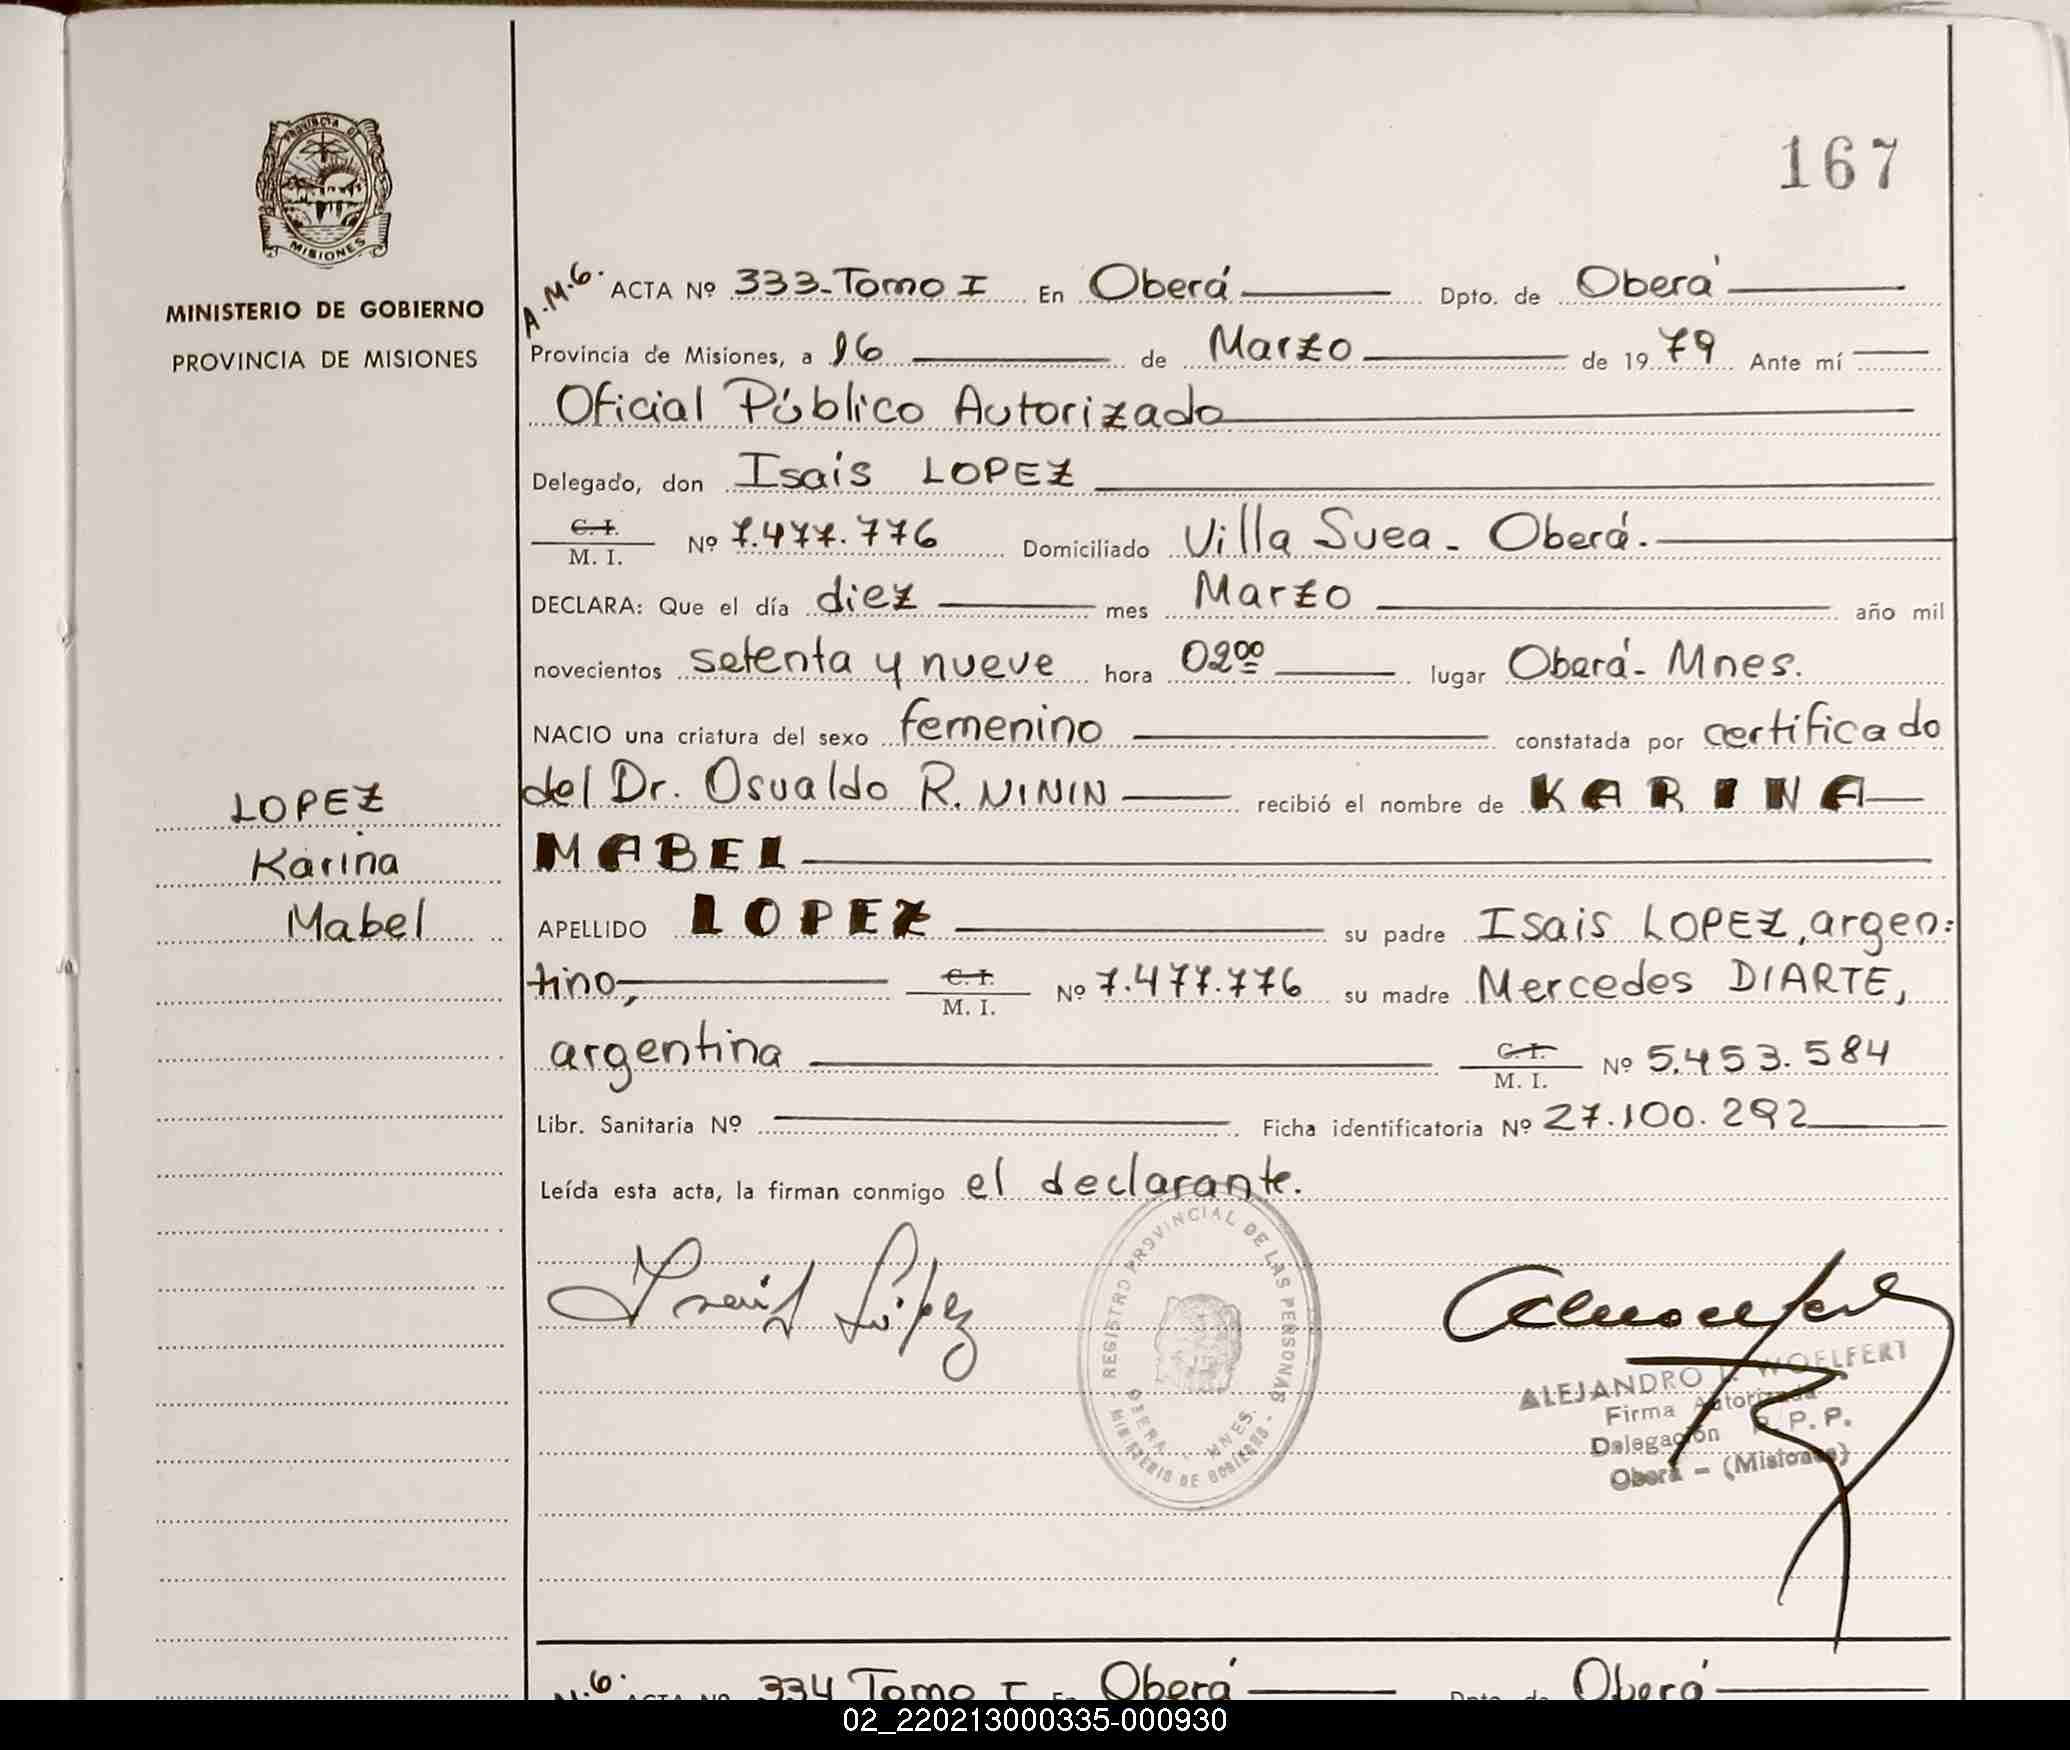 PROVINCIA DE
MISIONES
MINISTERIO DE GOBIERNO
PROVINCIA DE MISIONES
167
A.M.G. ACTA Nº 333-Tomo I En Oberá Dpto. de Oberá
Provincia de Misiones, a 16 de Marzo de 1979 Ante mí
Oficial Público Autorizado
Delegado, don Isais LOPEZ
C. I.
M. I. Nº 7.477.776 Domiciliado Villa Suea - Oberá.
DECLARA: Que el día diez mes Marzo año mil
novecientos setenta y nueve hora 02⁰⁰ lugar Oberá - Mnes.
NACIO una criatura del sexo femenino constatada por certificado
del Dr. Osvaldo R. NININ recibió el nombre de KARINA
MABEL
LOPEZ
Karina
Mabel
APELLIDO LOPEZ su padre Isais LOPEZ, argen=
tino, C. I.
M. I. Nº 7.477.776 su madre Mercedes DIARTE,
argentina C. I.
M. I. Nº 5.453.584
Libr. Sanitaria Nº Ficha identificatoria Nº 27.100.292
Leída esta acta, la firman conmigo el declarante.
Isais López
REGISTRO PROVINCIAL DE LAS PERSONAS
OBERA - MNES.
MINISTERIO DE GOBIERNO
ALEJANDRO WOELFERT
Firma Autorizada
Delegación R. P. P.
Oberá - (Misiones)
334 Tomo I En Oberá Dpto. de Oberá
02_220213000335-000930